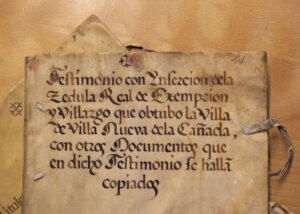 Testimonio con Ynsercion dela
Zedula Real de Exempzion
y Villazgo que obtubo la Villa
de Villa Nueva de la Cañada,
con otros Documentos que
en dicho Testimonio se hallã
copiados